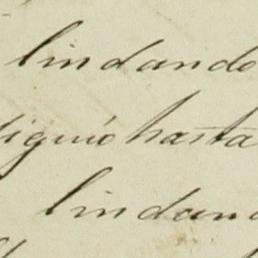 lindando
siguió hasta
lindand